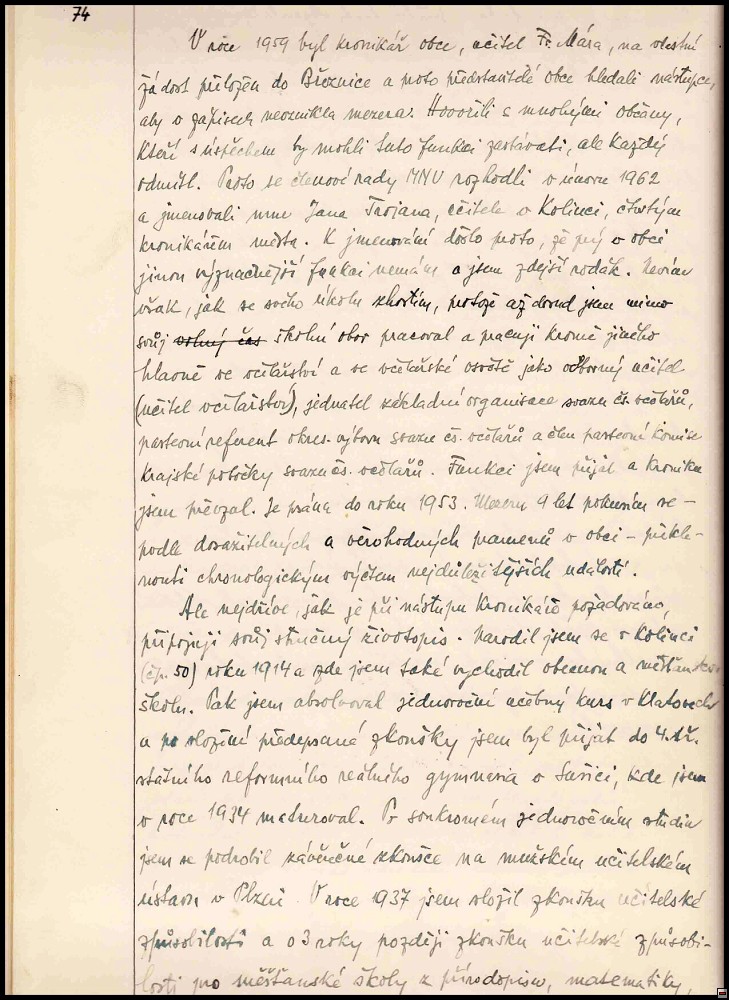 74
V roce 1959 byl kronikář obce, učitel Fr. Mára, na vlastní
žádost přeložen do Březnice a proto představitelé obce hledali nástupce,
aby v zápisech nevznikla mezera. Hovořili s mnohými občany,
kteří s úspěchem by mohli tuto funkci zastávati, ale každý
odmítl. Proto se členové rady MNV rozhodli v únoru 1962
a jmenovali mne Jana Trojana, učitele v Kolinci, čtvrtým
kronikářem města. K jmenování došlo proto, že prý v obci
jinou význačnější funkci nemám a jsem zdejší rodák. Nevím
však, jak se svého úkolu zhostím, protože až dosud jsem mimo
svůj volný čas školní obor pracoval a pracuji kromě jiného
hlavně ve včelařství a ve včelařské osvětě jako odborný učitel
(učitel včelařství), jednatel základní organisace svazu čs. včelařů,
pastevní referent okres. výboru svazu čs. včelařů a člen pastevní komise
krajské pobočky svazu čs. včelařů. Funkci jsem přijal a kroniku
jsem převzal. Je psána do roku 1953. Mezeru 9 let pokusím se –
podle dosažitelných a věrohodných pramenů v obci – překle-
nouti chronologickým výčtem nejdůležitějších událostí.
Ale nejdříve, jak je při nástupu kronikářů požadováno,
připojuji svůj stručný životopis. Narodil jsem se v Kolinci
(čp. 50) roku 1914 a zde jsem také vychodil obecnou a měšťanskou
školu. Pak jsem absolvoval jednoroční učebný kurs v Klatovech
a po složení předepsané zkoušky jsem byl přijat do 4. tř.
státního reformního reálného gymnasia v Sušici, kde jsem
v roce 1934 maturoval. Po soukromém jednoročním studiu
jsem se podrobil závěrečné zkoušce na mužském učitelském
ústavu v Plzni. V roce 1937 jsem složil zkoušku učitelské
způsobilosti a o 3 roky později zkoušku učitelské způsobi-
losti pro měšťanské školy z přírodopisu, matematiky,